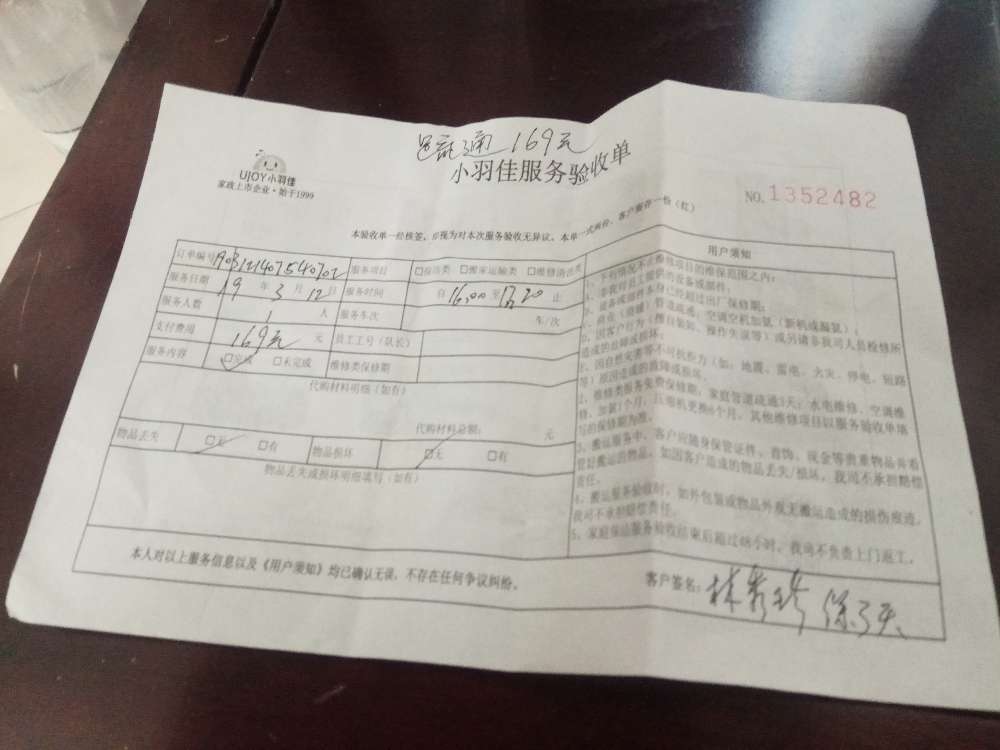 169元
UJOY小羽佳
家政上市企业·始于1999
小羽佳服务验收单
NO.1352482
本验收单一经核签，即视为对本次服务验收无异议。本单一式两份，客户留存一份（红）
订单编号 服务项目 □保洁类 □搬家运输类 □维修清洁类
服务日期 19年3月12日 服务时间 自16:00至17:20止
服务人数 1人 服务车次 车/次
支付费用 169元 元 员工工号（队长）
服务内容 □完成 □未完成 维修类保修期
代购材料明细（如有）
代购材料总额： 元
物品丢失 □无 □有 物品损坏 □无 □有
物品丢失或损坏明细填写（如有）
用户须知
1、下列情况不在维修项目的维保范围之内：
a、非我司员工提供的设备或部件；
b、设备或部件本身已经超过出厂保修期；
造成的故障或损坏；
等）原因造成的故障或损坏。
2、维修类服务免费保修期：家庭管道疏通3天；水电维修、空调维
修、加氨1个月，压缩机更换6个月。其他维修项目以服务验收单填
写的保修期为准。
3、搬运服务中，客户应随身保管证件、首饰、现金等贵重物品并看
管好搬运的物品，如因客户造成的物品丢失/损坏，我司不承担赔偿
责任。
4、搬运服务验收时，如外包装或物品外观无搬运造成的损伤痕迹，
我司不承担赔偿责任。
5、家庭保洁服务验收结束后超过48小时，我司不负责上门返工。
本人对以上服务信息以及《用户须知》均已确认无误，不存在任何争议纠纷。
客户签名：